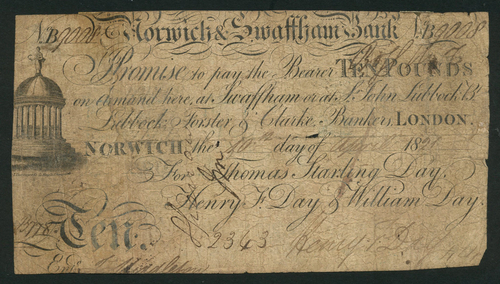 Norwich & Swaffham Bank
Promise to pay the Bearer TEN POUNDS
on demand here, at Swaffham or at Sr. John Lubbock Bt.
Lubbock, Forster, & Clarke, Bankers, LONDON.
NORWICH, the day of April 18
For Thomas Starling Day,
Henry F. Day & William Day.
Ten
2363
Henry F Day
Entd.